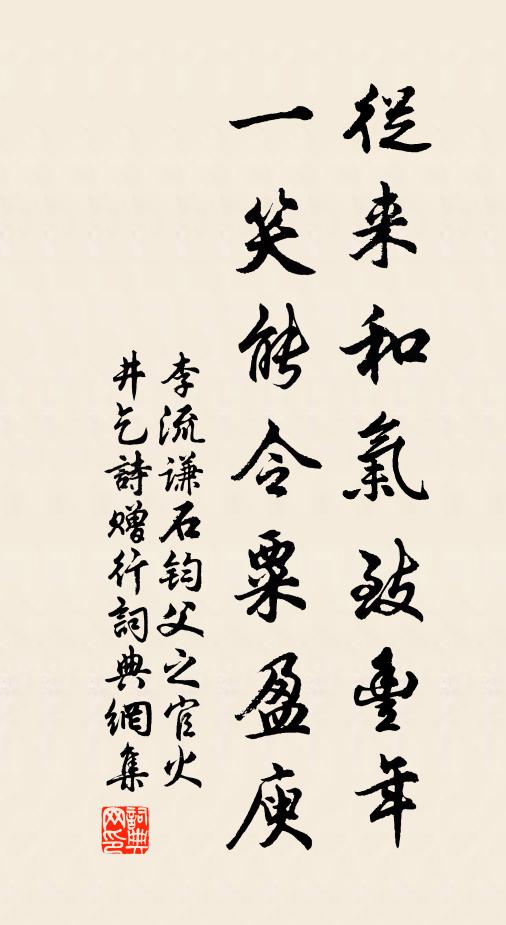 從来和氣致豊年
一笑能令粟盈庾
李流谦石鈞父之官火
井乞詩赠行詞典網集
詞典
网印